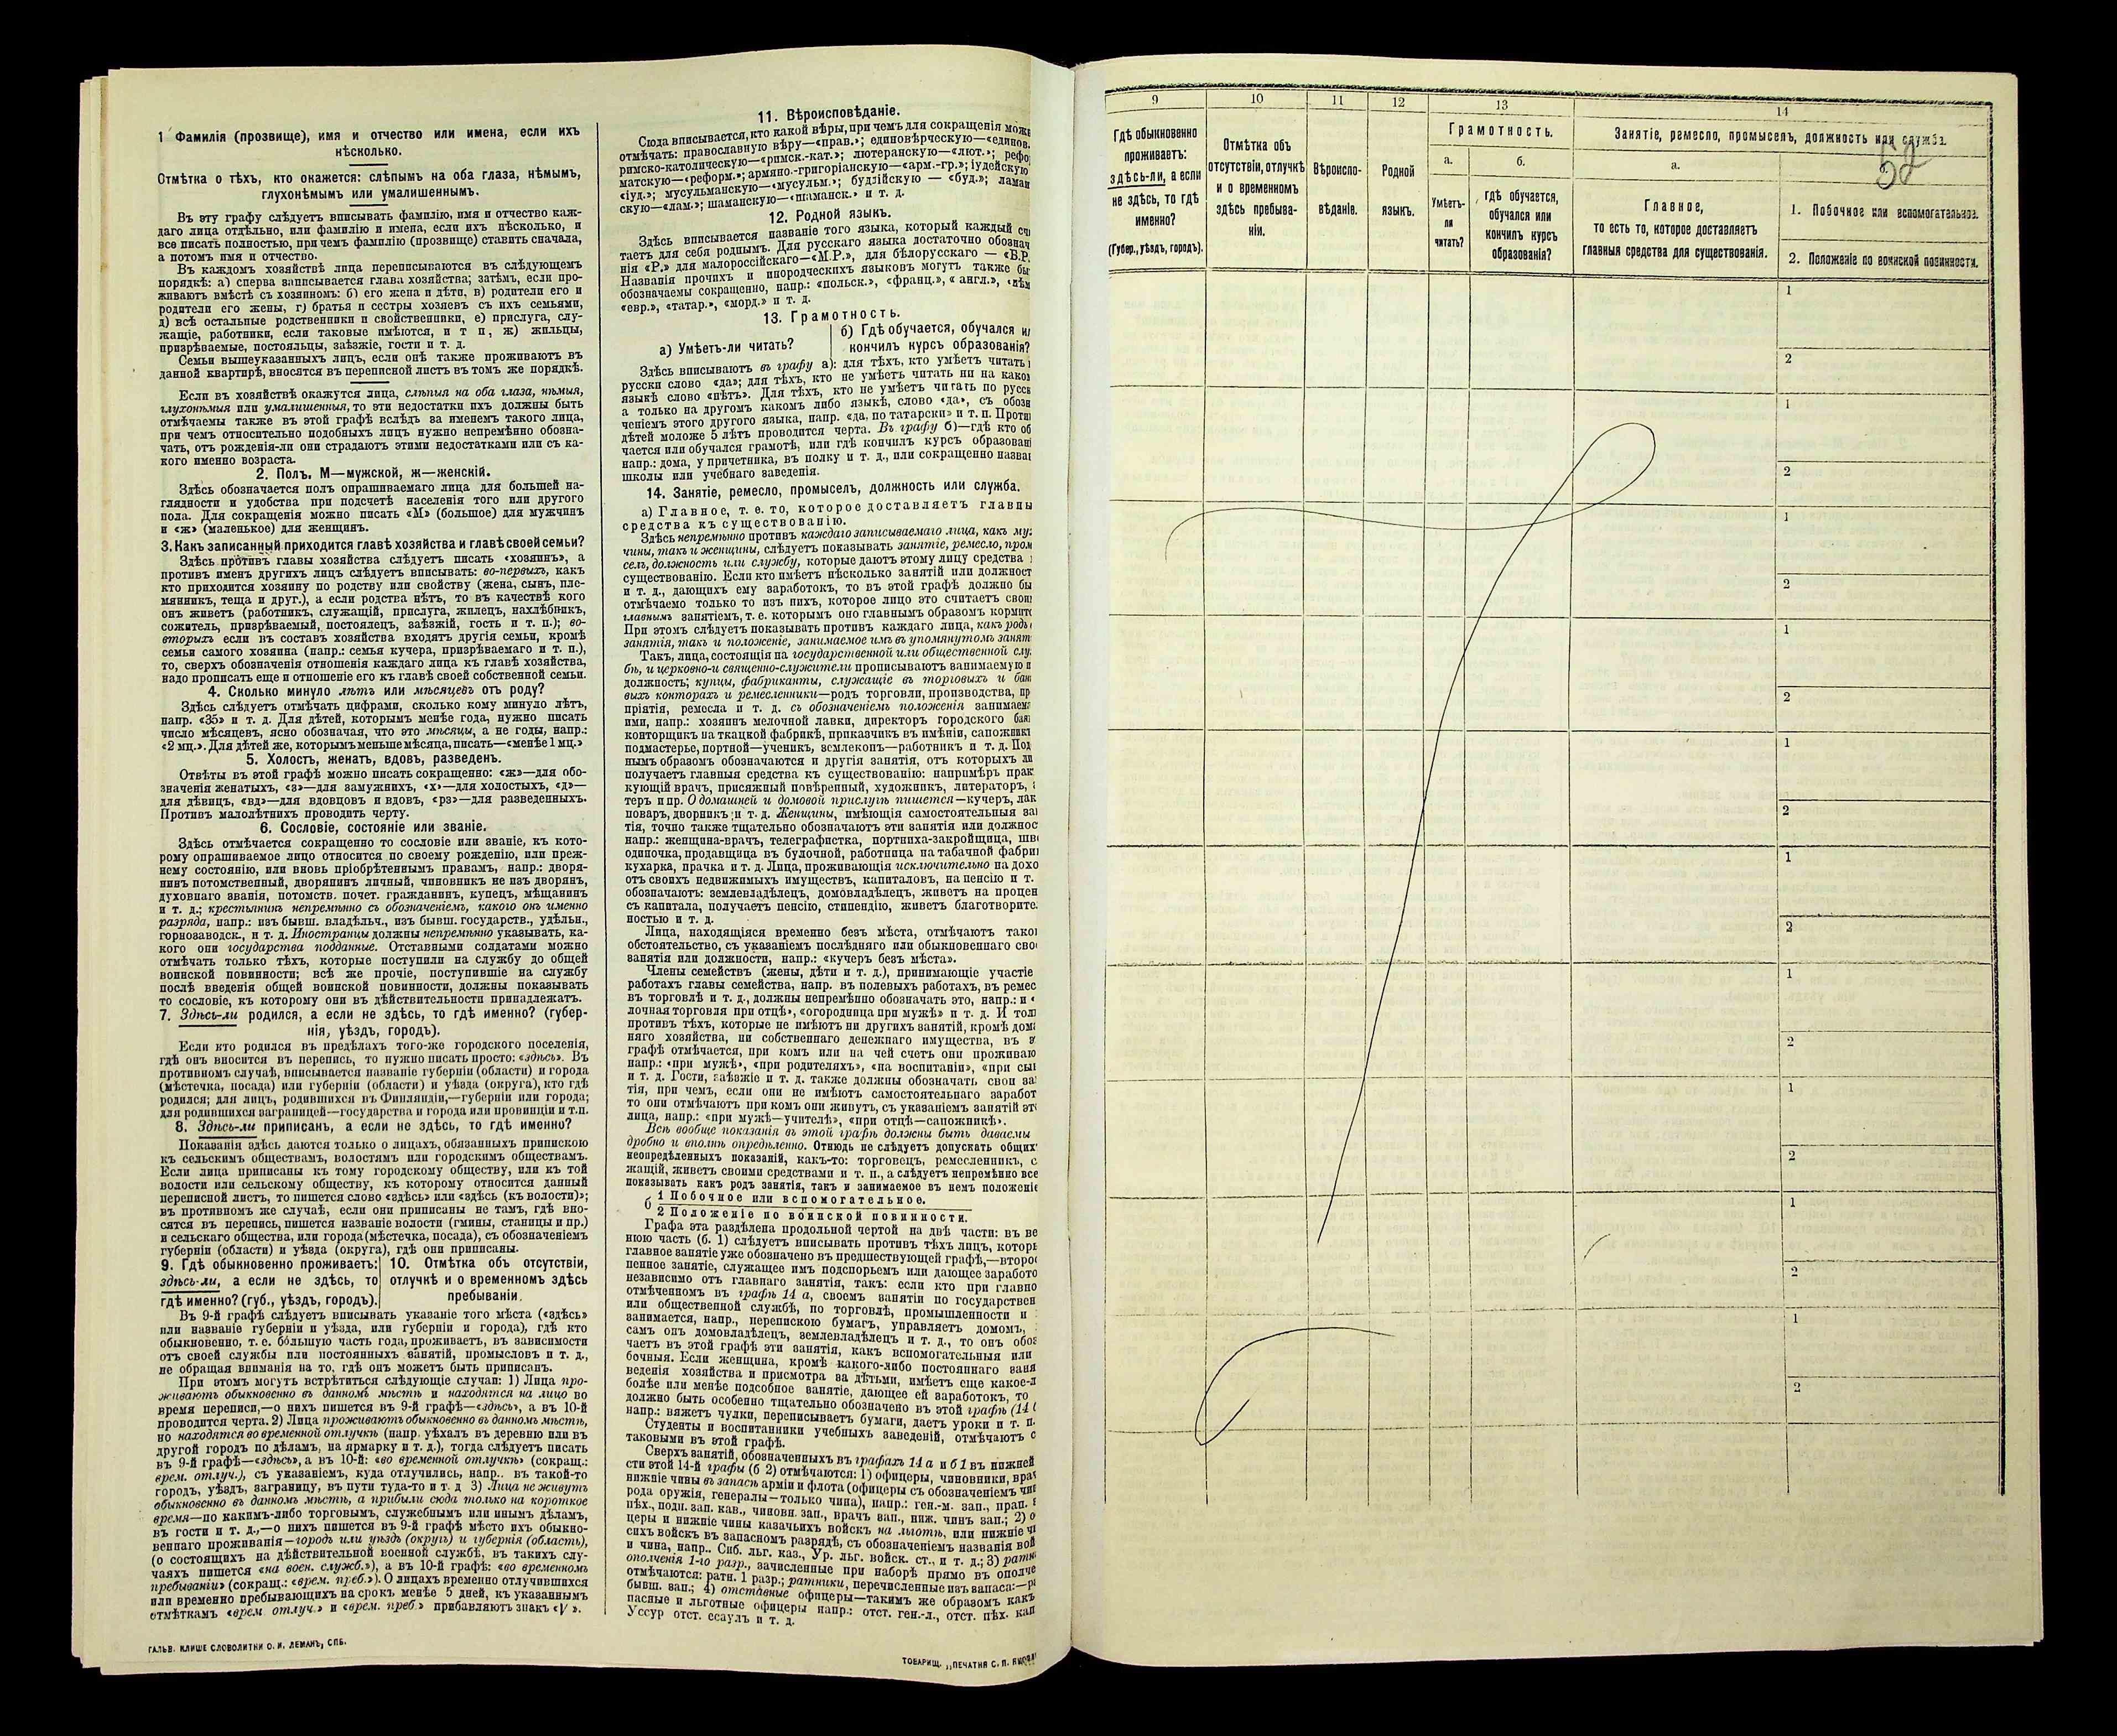 1 Фамилія (прозвище), имя и отчество или имена, если ихъ
нѣсколько.
Отмѣтка о тѣхъ, кто окажется: слѣпымъ на оба глаза, нѣмымъ,
глухонѣмымъ или умалишеннымъ.
Въ эту графу слѣдуетъ вписывать фамилію, имя и отчество каж-
даго лица отдѣльно, или фамилію и имена, если ихъ нѣсколько, и
все писать полностью, при чемъ фамилію (прозвище) ставить сначала,
а потомъ имя и отчество.
Въ каждомъ хозяйствѣ лица переписываются въ слѣдующемъ
порядкѣ: а) сперва записывается глава хозяйства; затѣмъ, если про-
живаютъ вмѣстѣ съ хозяиномъ: б) его жена и дѣти, в) родители его и
родители его жены, г) братья и сестры хозяевъ съ ихъ семьями,
д) всѣ остальные родственники и свойственники, е) прислуга, слу-
жащіе, работники, если таковые имѣются, и т п, ж) жильцы,
призрѣваемые, постояльцы, заѣзжіе, гости и т. д.
Семьи вышеуказанныхъ лицъ, если онѣ также проживаютъ въ
данной квартирѣ, вносятся въ переписной листъ въ томъ же порядкѣ.
Если въ хозяйствѣ окажутся лица, слѣпыя на оба глаза, нѣмыя,
глухонѣмыя или умалишенныя, то эти недостатки ихъ должны быть
отмѣчаемы также въ этой графѣ вслѣдъ за именемъ такого лица,
при чемъ относительно подобныхъ лицъ нужно непремѣнно обозна-
чать, отъ рожденія-ли они страдаютъ этими недостатками или съ ка-
кого именно возраста.
2. Полъ. М—мужской, ж—женскій.
Здѣсь обозначается полъ опрашиваемаго лица для большей на-
глядности и удобства при подсчетѣ населенія того или другого
пола. Для сокращенія можно писать «М» (большое) для мужчинъ
и «ж» (маленькое) для женщинъ.
3. Какъ записанный приходится главѣ хозяйства и главѣ своей семьи?
Здѣсь противъ главы хозяйства слѣдуетъ писать «хозяинъ», а
противъ именъ другихъ лицъ слѣдуетъ вписывать: во-первыхъ, какъ
кто приходится хозяину по родству или свойству (жена, сынъ, пле-
мянникъ, теща и друг.), а если родства нѣтъ, то въ качествѣ кого
онъ живетъ (работникъ, служащій, прислуга, жилецъ, нахлѣбникъ,
сожитель, призрѣваемый, постоялецъ, заѣзжій, гость и т. п.); во-
вторыхъ если въ составъ хозяйства входятъ другія семьи, кромѣ
семьи самого хозяина (напр.: семья кучера, призрѣваемаго и т. п.),
то, сверхъ обозначенія отношенія каждаго лица къ главѣ хозяйства,
надо прописать еще и отношеніе его къ главѣ своей собственной семьи.
4. Сколько минуло лѣтъ или мѣсяцевъ отъ роду?
Здѣсь слѣдуетъ отмѣчать цифрами, сколько кому минуло лѣтъ,
напр. «35» и т. д. Для дѣтей, которымъ менѣе года, нужно писать
число мѣсяцевъ, ясно обозначая, что это мѣсяцы, а не годы, напр.:
«2 мц.». Для дѣтей же, которымъ меньше мѣсяца, писать—«менѣе 1 мц.»
5. Холостъ, женатъ, вдовъ, разведенъ.
Отвѣты въ этой графѣ можно писать сокращенно: «ж»—для обо-
значенія женатыхъ, «з»—для замужнихъ, «х»—для холостыхъ, «д»—
для дѣвицъ, «вд»—для вдовцовъ и вдовъ, «рз»—для разведенныхъ.
Противъ малолѣтнихъ проводить черту.
6. Сословіе, состояніе или званіе.
Здѣсь отмѣчается сокращенно то сословіе или званіе, къ кото-
рому опрашиваемое лицо относится по своему рожденію, или преж-
нему состоянію, или вновь пріобрѣтеннымъ правамъ, напр.: дворя-
нинъ потомственный, дворянинъ личный, чиновникъ не изъ дворянъ,
духовнаго званія, потомств. почет. гражданинъ, купецъ, мѣщанинъ
и т. д.; крестьянинъ непремѣнно съ обозначеніемъ, какого онъ именно
разряда, напр.: изъ бывш. владѣльч., изъ бывш. государств., удѣльн.,
горнозаводск., и т. д. Иностранцы должны непремѣнно указывать, ка-
кого они государства подданные. Отставными солдатами можно
отмѣчать только тѣхъ, которые поступили на службу до общей
воинской повинности; всѣ же прочіе, поступившіе на службу
послѣ введенія общей воинской повинности, должны показывать
то сословіе, къ которому они въ дѣйствительности принадлежатъ.
7. Здѣсь-ли родился, а если не здѣсь, то гдѣ именно? (губер-
нія, уѣздъ, городъ).
Если кто родился въ предѣлахъ того-же городского поселенія,
гдѣ онъ вносится въ перепись, то нужно писать просто: «здѣсь». Въ
противномъ случаѣ, вписывается названіе губерніи (области) и города
(мѣстечка, посада) или губерніи (области) и уѣзда (округа), кто гдѣ
родился; для лицъ, родившихся въ Финляндіи,—губерніи или города;
для родившихся заграницей—государства и города или провинціи и т.п.
8. Здѣсь-ли приписанъ, а если не здѣсь, то гдѣ именно?
Показанія здѣсь даются только о лицахъ, обязанныхъ припискою
къ сельскимъ обществамъ, волостямъ или городскимъ обществамъ.
Если лица приписаны къ тому городскому обществу, или къ той
волости или сельскому обществу, къ которому относится данный
переписной листъ, то пишется слово «здѣсь» или «здѣсь (къ волости)»;
въ противномъ же случаѣ, если они приписаны не тамъ, гдѣ вно-
сятся въ перепись, пишется названіе волости (гмины, станицы и пр.)
и сельскаго общества, или города (мѣстечка, посада), съ обозначеніемъ
губерніи (области) и уѣзда (округа), гдѣ они приписаны.
9. Гдѣ обыкновенно проживаетъ:
здѣсь-ли, а если не здѣсь, то
гдѣ именно? (губ., уѣздъ, городъ).
10. Отмѣтка объ отсутствіи,
отлучкѣ и о временномъ здѣсь
пребываніи.
Въ 9-й графѣ слѣдуетъ вписывать указаніе того мѣста («здѣсь»
или названіе губерніи и уѣзда, или губерніи и города), гдѣ кто
обыкновенно, т. е. бóльшую часть года, проживаетъ, въ зависимости
отъ своей службы или постоянныхъ занятій, промысловъ и т. д.,
не обращая вниманія на то, гдѣ онъ можетъ быть приписанъ.
При этомъ могутъ встрѣтиться слѣдующіе случаи: 1) Лица про-
живаютъ обыкновенно въ данномъ мѣстѣ и находятся на лицо во
время переписи,—о нихъ пишется въ 9-й графѣ—«здѣсь», а въ 10-й
проводится черта. 2) Лица проживаютъ обыкновенно въ данномъ мѣстѣ,
но находятся во временной отлучкѣ (напр. уѣхалъ въ деревню или въ
другой городъ по дѣламъ, на ярмарку и т. д.), тогда слѣдуетъ писать
въ 9-й графѣ—«здѣсь», а въ 10-й: «во временной отлучкѣ» (сокращ.:
врем. отлуч.), съ указаніемъ, куда отлучились, напр.. въ такой-то
городъ, уѣздъ, заграницу, въ пути туда-то и т. д 3) Лица не живутъ
обыкновенно въ данномъ мѣстѣ, а прибыли сюда только на короткое
время—по какимъ-либо торговымъ, служебнымъ или инымъ дѣламъ,
въ гости и т. д.,—о нихъ пишется въ 9-й графѣ мѣсто ихъ обыкно-
веннаго проживанія—городъ или уѣздъ (округъ) и губернія (область),
(о состоящихъ на дѣйствительной военной службѣ, въ такихъ слу-
чаяхъ пишется «на воен. служб.»), а въ 10-й графѣ: «во временномъ
пребываніи» (сокращ.: «врем. преб.»). О лицахъ временно отлучившихся
или временно пребывающихъ на срокъ менѣе 5 дней, къ указаннымъ
отмѣткамъ «врем отлуч.» и «врем. преб.» прибавляютъ знакъ «V».
ГАЛЬВ. КЛИШЕ СЛОВОЛИТНИ О. И. ЛЕМАНЪ, СПБ.
11. Вѣроисповѣданіе.
Сюда вписывается, кто какой вѣры, при чемъ для сокращенія може
отмѣчать: православную вѣру—«прав.»; единовѣрческую—«единов.
римско-католическую—«римск.-кат.»; лютеранскую—«лют.»; рефо
матскую—«реформ.»; армяно.-григоріанскую—«арм.-гр.»; іудейскую
«іуд.»; мусульманскую—«мусульм.»; буддійскую — «буд.»; ламаи
скую—«лам.»; шаманскую—«шаманск.» и т. д.
12. Родной языкъ.
Здѣсь вписывается названіе того языка, который каждый счи
таетъ для себя роднымъ. Для русскаго языка достаточно обознач
нія «Р.» для малороссійскаго—«М.Р.», для бѣлорусскаго — «Б.Р.
Названія прочихъ и инородческихъ языковъ могутъ также бы
обозначаемы сокращенно, напр.: «польск.», «франц.», « англ.», «нѣм
«евр.», «татар.», «морд.» и т. д.
13. Грамотность.
а) Умѣетъ-ли читать?
б) Гдѣ обучается, обучался ил
кончилъ курсъ образованія?
Здѣсь вписываютъ въ графу а): для тѣхъ, кто умѣетъ читать
русски слово «да»; для тѣхъ, кто не умѣетъ читать ни на каком
языкѣ слово «нѣтъ». Для тѣхъ, кто не умѣетъ читать по русск
а только на другомъ какомъ либо языкѣ, слово «да», съ обозн
ченіемъ этого другого языка, напр. «да, по татарски» и т. п. Проти
дѣтей моложе 5 лѣтъ проводится черта. Въ графу б)—гдѣ кто об
чается или обучался грамотѣ, или гдѣ кончилъ курсъ образовані
напр.: дома, у причетника, въ полку и т. д., или сокращенно назван
школы или учебнаго заведенія.
14. Занятіе, ремесло, промыселъ, должность или служба.
а) Главное, т. е. то, которое доставляетъ главны
средства къ существованію.
Здѣсь непремѣнно противъ каждаго записываемаго лица, какъ му
чины, такъ и женщины, слѣдуетъ показывать занятіе, ремесло, пром
селъ, должность или службу, которые даютъ этому лицу средства
существованію. Если кто имѣетъ нѣсколько занятій или должност
и т. д., дающихъ ему заработокъ, то въ этой графѣ должно бы
отмѣчаемо только то изъ нихъ, которое лицо это считаетъ свои
главнымъ занятіемъ, т. е. которымъ оно главнымъ образомъ кормитс
При этомъ слѣдуетъ показывать противъ каждаго лица, какъ родъ
занятія, такъ и положеніе, занимаемое имъ въ упомянутомъ занят
Такъ, лица, состоящія на государственной или общественной слу
бѣ, и церковно-и священно-служители прописываютъ занимаемую и
должность; купцы, фабриканты, служащіе въ торговыхъ и бан
выхъ конторахъ и ремесленники—родъ торговли, производства, пр
пріятія, ремесла и т. д. съ обозначеніемъ положенія занимаем
ими, напр.: хозяинъ мелочной лавки, директоръ городского бан
конторщикъ на ткацкой фабрикѣ, приказчикъ въ имѣніи, сапожникъ
подмастерье, портной—ученикъ, землекопъ—работникъ и т. д. Под
нымъ образомъ обозначаются и другія занятія, отъ которыхъ ли
получаетъ главныя средства къ существованію: напримѣръ прак
кующій врачъ, присяжный повѣренный, художникъ, литераторъ,
теръ и пр. О домашней и домовой прислугѣ пишется—кучеръ, лак
поваръ, дворникъ и т. д. Женщины, имѣющія самостоятельныя зан
тія, точно также тщательно обозначаютъ эти занятія или должнос
напр.: женщина-врачъ, телеграфистка, портниха-закройщица, шве
одиночка, продавщица въ булочной, работница на табачной фабри
кухарка, прачка и т. д. Лица, проживающія исключительно на дохо
отъ своихъ недвижимыхъ имуществъ, капиталовъ, на пенсію и т.
обозначаютъ: землевладѣлецъ, домовладѣлецъ, живетъ на процен
съ капитала, получаетъ пенсію, стипендію, живетъ благотворите
ностью и т. д.
Лица, находящіяся временно безъ мѣста, отмѣчаютъ тако
обстоятельство, съ указаніемъ послѣдняго или обыкновеннаго сво
занятія или должности, напр.: «кучеръ безъ мѣста».
Члены семействъ (жены, дѣти и т. д.), принимающіе участіе
работахъ главы семейства, напр. въ полевыхъ работахъ, въ ремес
въ торговлѣ и т. д., должны непремѣнно обозначать это, напр.: «
лочная торговля при отцѣ», «огородница при мужѣ» и т. д. И тол
противъ тѣхъ, которые не имѣютъ ни другихъ занятій, кромѣ дома
няго хозяйства, ни собственнаго денежнаго имущества, въ э
графѣ отмѣчается, при комъ или на чей счетъ они проживаю
напр.: «при мужѣ», «при родителяхъ», «на воспитаніи», «при сы
и т. д. Гости, заѣзжіе и т. д. также должны обозначать свои за
тія, при чемъ, если они не имѣютъ самостоятельнаго заработ
то они отмѣчаютъ при комъ они живутъ, съ указаніемъ занятій это
лица, напр.: «при мужѣ—учителѣ», «при отцѣ—сапожникѣ».
Всѣ вообще показанія въ этой графѣ должны быть даваемы
дробно и вполнѣ опредѣленно. Отнюдь не слѣдуетъ допускать общихъ
неопредѣленныхъ показаній, какъ-то: торговецъ, ремесленникъ, с
жащій, живетъ своими средствами и т. п., а слѣдуетъ непремѣнно все
показывать какъ родъ занятія, такъ и занимаемое въ немъ положеніе
б
1 Побочное или вспомогательное.
2 Положеніе по воинской повинности.
Графа эта раздѣлена продольной чертой на двѣ части: въ ве
нюю часть (б. 1) слѣдуетъ вписывать противъ тѣхъ лицъ, которы
главное занятіе уже обозначено въ предшествующей графѣ,—второс
пенное занятіе, служащее имъ подспорьемъ или дающее заработо
независимо отъ главнаго занятія, такъ: если кто при главно
отмѣченномъ въ графѣ 14 а, своемъ занятіи по государствен
или общественной службѣ, по торговлѣ, промышленности и
занимается, напр., перепискою бумагъ, управляетъ домомъ,
самъ онъ домовладѣлецъ, землевладѣлецъ и т. д., то онъ обоз
чаетъ въ этой графѣ эти занятія, какъ вспомогательныя или
бочныя. Если женщина, кромѣ какого-либо постояннаго заня
веденія хозяйства и присмотра за дѣтьми, имѣетъ еще какое-л
болѣе или менѣе подсобное занятіе, дающее ей заработокъ, то
должно быть особенно тщательно обозначено въ этой графѣ (14 б
напр.: вяжетъ чулки, переписываетъ бумаги, даетъ уроки и т. п.
Студенты и воспитанники учебныхъ заведеній, отмѣчаютъ с
таковыми въ этой графѣ.
Сверхъ занятій, обозначенныхъ въ графахъ 14 а и б 1 въ нижней
сти этой 14-й графы (б 2) отмѣчаются: 1) офицеры, чиновники, врач
нижніе чины въ запасѣ арміи и флота (офицеры съ обозначеніемъ чин
рода оружія, генералы—только чина), напр.: ген.-м. зап., прап.
пѣх., подп. зап. кав., чиновн. зап., врачъ зап., ниж. чинъ зап.; 2) о
церы и нижніе чины казачьихъ войскъ на льготѣ, или нижніе чи
сихъ войскъ въ запасномъ разрядѣ, съ обозначеніемъ названія вой
и чина, напр.. Сиб. льг. каз., Ур. льг. войск. ст., и т. д.; 3) ратн
ополченія 1-го разр., зачисленные при наборѣ прямо въ ополче
отмѣчаются: ратн. 1 разр.; ратники, перечисленные изъ запаса:—ра
бывш. зап.; 4) отставные офицеры—такимъ же образомъ какъ
пасные и льготные офицеры напр.: отст. ген.-л., отст. пѣх. кап
Уссур отст. есаулъ и т. д.
ТОВАРИЩ. „ПЕЧАТНЯ С. П.
9
10
11
12
13
14
52
Гдѣ обыкновенно
проживаетъ:
здѣсь-ли, а если
не здѣсь, то гдѣ
именно?
(Губер., уѣздъ, городъ).
Отмѣтка объ
отсутствіи, отлучкѣ
и о временномъ
здѣсь пребыва-
ніи.
Вѣроиспо-
вѣданіе.
Родной
языкъ.
Грамотность.
а.
Умѣетъ-
ли
читать?
б.
гдѣ обучается,
обучался или
кончилъ курсъ
образованія?
Занятіе, ремесло, промыселъ, должность или служба.
а.
Главное,
то есть то, которое доставляетъ
главныя средства для существованія.
б.
1. Побочное или вспомогательное.
2. Положеніе по воинской повинности.
1
2
1
2
1
2
1
2
1
2
1
2
1
2
1
2
1
2
1
2